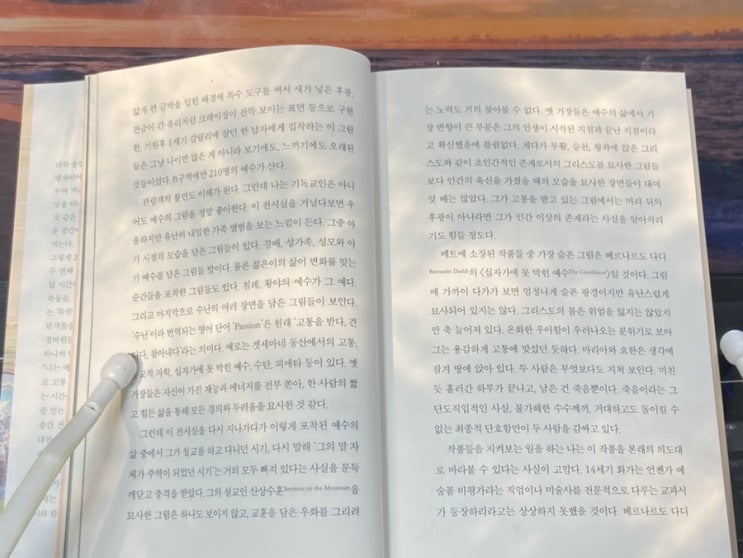 얇게 편 금박을 입힌 배경에 특수 도구를 써서 새겨 넣은 후광,
전금이 간 유리처럼 크레이징이 잔뜩 보이는 표면 등으로 구현
한, 기원후 1세기 갈릴리에 살던 한 남자에게 집착하는 이 그림
들은 그냥 나이만 많은 게 아니라 보기에도, 느끼기에도 오래된
것들이었다. B구역에만 210명의 예수가 산다.
관람객의 불만도 이해가 된다. 그런데 나는 기독교인은 아니
어도 예수의 그림을 정말 좋아한다. 이 전시실을 거닐다보면 우
울하지만 유난히 내밀한 가족 앨범을 보는 느낌이 든다. 그중 아
기 시절의 모습을 담은 그림들이 있다. 경배, 성가족, 성모와 아
기 예수를 담은 그림들 말이다. 물론 젊은이의 삶이 변화를 맞는
순간들을 포착한 그림들도 있다. 침례, 황야의 예수가 그 예다.
그리고 마지막으로 수난의 여러 장면을 담은 그림들이 보인다.
'수난'이라 번역되는 영어 단어 'Passion'은 원래 '고통을 받다, 견
디다, 참아내다'라는 의미다. 예로는 겟세마니 동산에서의 고통,
교적 자학, 십자가에 못 박힌 예수, 수난, 피에타 등이 있다. 옛
거장들은 자신이 가진 재능과 에너지를 전부 쏟아, 한 사람의 짧
고 힘든 삶을 통해 모든 경외와 두려움을 묘사한 것 같다.
그런데 이 전시실을 다시 지나가다가 이렇게 포착된 예수의
삶 중에서 그가 설교를 하고 다니던 시기, 다시 말해 '그의 말 자
체가 주역이 되었던 시기'는 거의 모두 빠져 있다는 사실을 문득
깨닫고 충격을 받았다. 그의 설교인 산상수훈Sermon on the Mountain을
묘사한 그림은 하나도 보이지 않고, 교훈을 담은 우화를 그리려
는 노력도 거의 찾아볼 수 없다. 옛 거장들은 예수의 삶에서 가
장 반향이 큰 부분은 그의 인생이 시작된 지점과 끝난 지점이라
고 확신했음에 틀림없다. 게다가 부활, 승천, 왕좌에 앉은 그리
스도와 같이 초인간적인 존재로서의 그리스도를 묘사한 그림들
보다 인간의 육신을 가졌을 때의 모습을 묘사한 장면들이 대여
섯 배는 많았다. 그가 고통을 받고 있는 그림에서는 머리 뒤의
후광이 아니라면 그가 인간 이상의 존재라는 사실을 알아차리
기도 힘들 정도다.
메트에 소장된 작품들 중 가장 슬픈 그림은 베르나르도 다디
Bernardo Daddi의 〈십자가에 못 박힌 예수The Crucifixion〉일 것이다. 그림
에 가까이 다가가 보면 엄청나게 슬픈 광경이지만 유난스럽게
묘사되어 있지는 않다. 그리스도의 몸은 위엄을 잃지는 않았지
만 축 늘어져 있다. 온화한 우아함이 우러나오는 분위기로 보아
그는 용감하게 고통에 맞섰던 듯하다. 마리아와 요한은 생각에
잠겨 땅에 앉아 있다. 두 사람은 무엇보다도 지쳐 보인다. 미친
듯 흘러간 하루가 끝나고, 남은 건 죽음뿐이다. 죽음이라는 그
단도직입적인 사실, 불가해한 수수께끼, 거대하고도 돌이킬 수
없는 최종적 단호함만이 두 사람을 감싸고 있다.
작품들을 지켜보는 일을 하는 나는 이 작품을 본래의 의도대
로 바라볼 수 있다는 사실이 고맙다. 14세기 화가는 언젠가 예
술품 비평가라는 직업이나 미술사를 전문적으로 다루는 교과서
가 등장하리라고는 상상하지 못했을 것이다. 베르나르도 다디